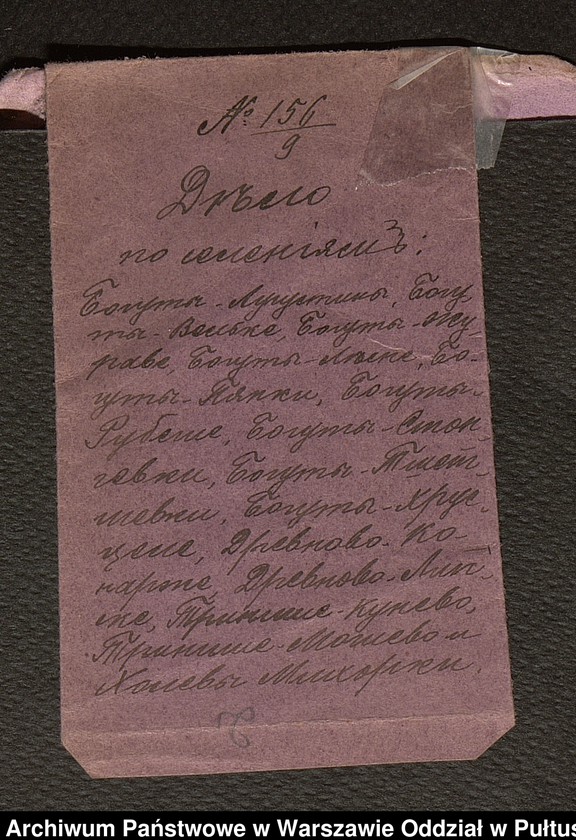 № 156
9
Дѣло
по селеніямъ:
Богуты-Августины, Богу
ты-Вельке, Богуты-Жу-
раве, Богуты-Лесне, Бо-
гуты-Пянки, Богуты-
Рубеше, Богуты-Стон-
гевки, Богуты-Тшет-
шевки, Богуты-Хрус-
целе, Древново-Ко-
нарже, Древново-Лип-
ске, Трынише-Кунево,
Трынише-Мошево и
Холевы Милхорки.
Archiwum Państwowe w Warszawie Oddział w Pułtus